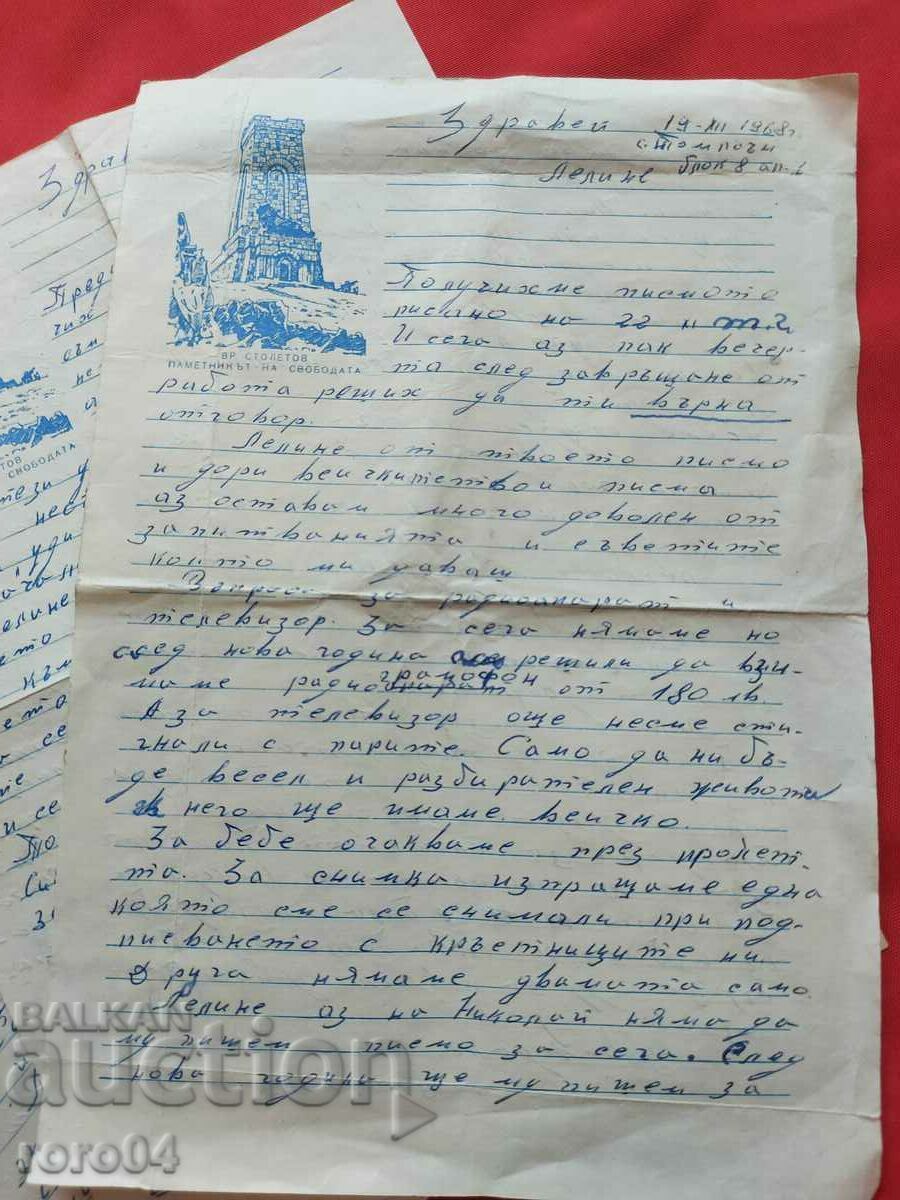 Здравей 19-XII 1968г
с. Томпочи
Лелине блок 8 ап.
ВР. СТОЛЕТОВ
ПАМЕТНИКЪТ НА СВОБОДАТА
Получихме писмото
писано на 22 и т.г.
И сега аз пак вечер-
та след завръщане от
работа реших да ти върна
отговор.
Лелине от твоето писмо
и дори всичките твои писма
аз оставам много доволен от
запитванията и съветите
които ми даваш
Въпроса за радиоапарат и
телевизор. За сега нямаме но
след нова година сме решили да взи-
маме радиограмофон от 180 лв.
А за телевизор още несме сти-
гнали с парите. Само да ни бъ-
де весел и разбирателен живота
в него ще имаме всичко.
За бебе очакваме през пролет-
та. За снимка изпращаме една
която сме се снимали при под-
писването с кръстниците ни.
Друга нямаме двамата само.
Лелине аз на Николай няма да
му пишем писмо за сега. След
нова година ще му пишем за
Здра
Пред
чих
съм
не
а
ТОВ
СВОБОДАТА
тези у
нест
уди
лине
то
към
ета
а се
ме
и се
По
Си
BALKAN
auction
roro04